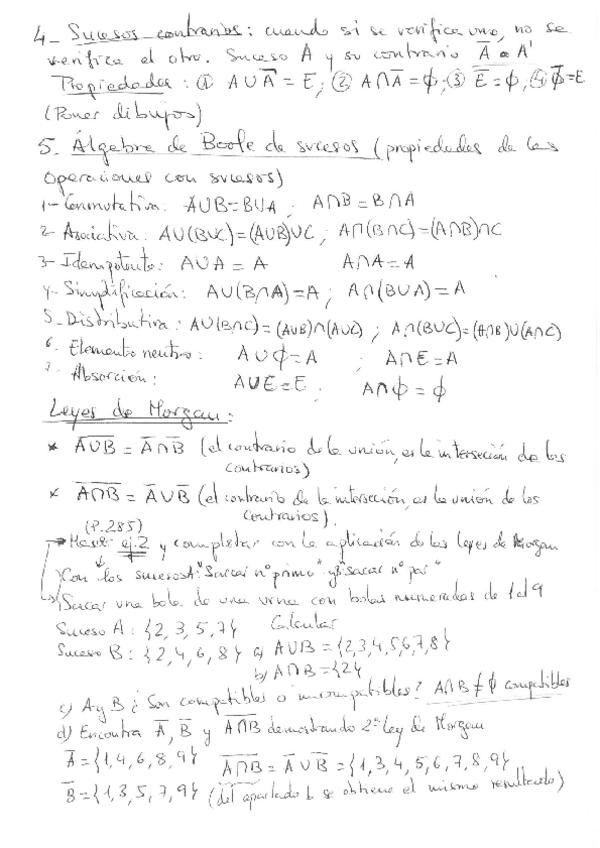 4- Sucesos contrarios: cuando si se verifica uno, no se
verifica el otro. Suceso A y su contrario A̅ o A'
Propiedades: ① A∪A̅ = E; ② A∩A̅ = ϕ; ③ E̅ = ϕ; ④ ϕ̅ = E
(Poner dibujos)
5. Álgebra de Boole de sucesos (propiedades de las
operaciones con sucesos)
1- Conmutativa: A∪B = B∪A; A∩B = B∩A
2- Asociativa: A∪(B∪C) = (A∪B)∪C; A∩(B∩C) = (A∩B)∩C
3- Idempotente: A∪A = A A∩A = A
4- Simplificación: A∪(B∩A) = A; A∩(B∪A) = A
5- Distributiva: A∪(B∩C) = (A∪B)∩(A∪C); A∩(B∪C) = (A∩B)∪(A∩C)
6- Elemento neutro: A∪ϕ = A; A∩E = A
7- Absorción: A∪E = E; A∩ϕ = ϕ
Leyes de Morgan:
* A̅∪̅B̅ = A̅∩B̅ (el contrario de la unión, es la intersección de los
contrarios)
* A̅∩̅B̅ = A̅∪B̅ (el contrario de la intersección, es la unión de los
contrarios).
(P.285)
Hacer ej.2 y completar con la aplicación de las leyes de Morgan
Con los sucesos A: "Sacar nº primo" y B: "sacar nº par"
Sacar una bola de una urna con bolas numeradas de 1 al 9
Suceso A: {2, 3, 5, 7} Calcular
Suceso B: {2, 4, 6, 8} a) A∪B = {2,3,4,5,6,7,8}
b) A∩B = {2}
c) A y B ¿Son compatibles o incompatibles? A∩B ≠ ϕ compatibles
d) Encontra A̅, B̅ y A̅∩̅B̅ demostrando 2ª ley de Morgan
A̅ = {1,4,6,8,9} A̅∩̅B̅ = A̅∪B̅ = {1,3,4,5,6,7,8,9}
B̅ = {1,3,5,7,9} (del apartado b se obtiene el mismo resultado)